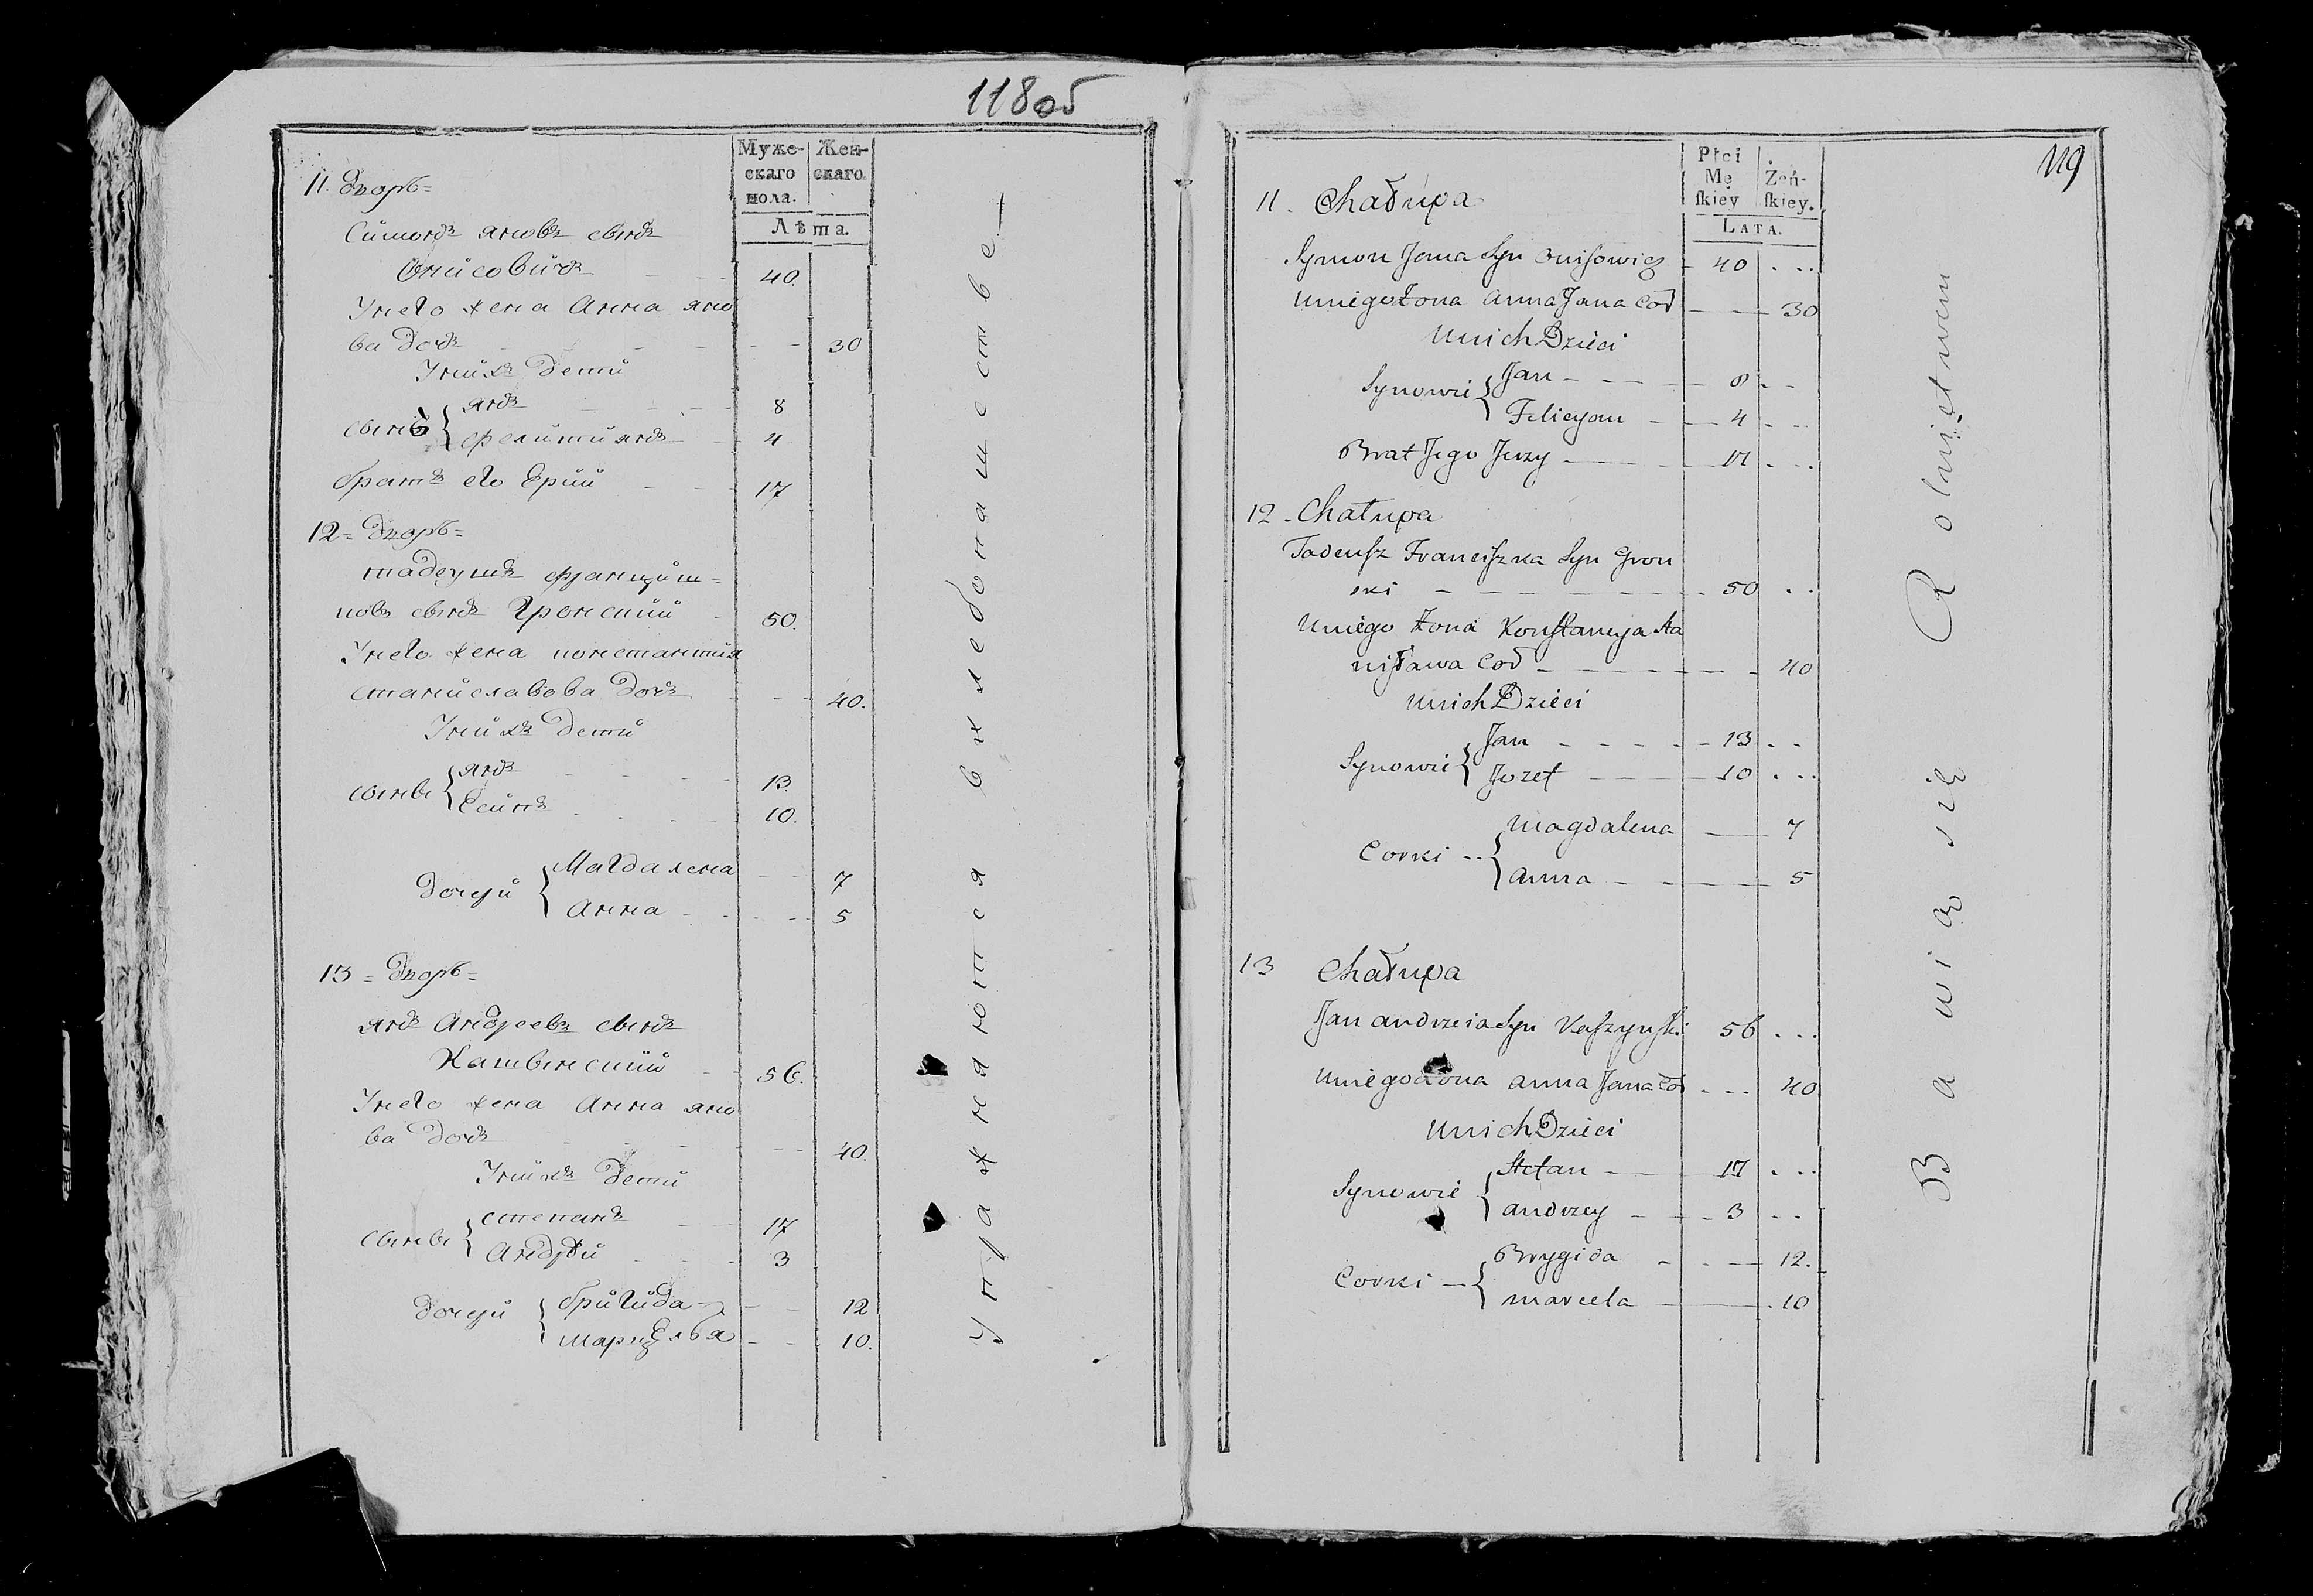 118об
Муже-
скаго
пола.
Жен-
скаго.
Лѣта.
11. дворъ=
Симонъ Яновъ сынъ
Онисовичъ - - 40.
Унего жена Анна Яно
ва дочь - - - - 30
Унихъ дети
сыны { Янъ - - - 8
Фелитиянъ - 4
братъ его Ерий - - 17
12= дворъ=
Тадеушъ Франциш=
ковъ сынъ Гронский - 50.
Унего жена константия
станиславова дочь - - 40.
Унихъ дети
сыны { Янъ - - - 13.
Есипъ - - - 10.
дочери { Магдалена - - 7
Анна - - - 5
13= дворъ=
Янъ Андреевъ сынъ
Кашынский - - 56.
Унего жена Анна Яно
ва дочь - - - - 40.
Унихъ дети
сыны { степанъ - - 17
Андрѣй - - - 3
дочери { бригида - - 12
Марцелья - - 10.
Упражняются в хлебопашестве —
119
Płci
Mę
ſkiey
Żeń-
ſkiey.
LATA.
11. Chałupa
Symon Jana Syn Onisowicz - 40 . ...
Uniego Żona Anna Jana Cor — — 30
Unich Dzieci
Synowie { Jan - - - - 8 - -
Felicyan - — 4 - - -
Brat Jego Jerzy — - - 17 . ...
12. Chałupa
Tadeuſz Franciſzka Syn Gron
ski - - - - - - 50 . .
Uniego Żona Konſtancya Sta
nisława Cor - - - - - 40
Unich Dzieci
Synowie { Jan - - - - - 13 . - -
Jozef - — - 10 . ...
Corki -- { Magdalena — 7
Anna - - - — - 5
13 Chałupa
Jan Andrzeia Syn Kaſzynſki 56 ...
Uniego Żona Anna Jana Cor . ... 40
Unich Dzieci
Synowie { Stefan - — 17 . ...
Andrzey - - - 3 . - -
Corki — { Brygida - . — 12.
Marcela - — . 10
Bawią się Rolnictwem